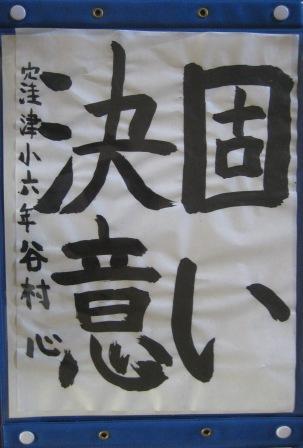 固い
決意
窪津小六年谷村心